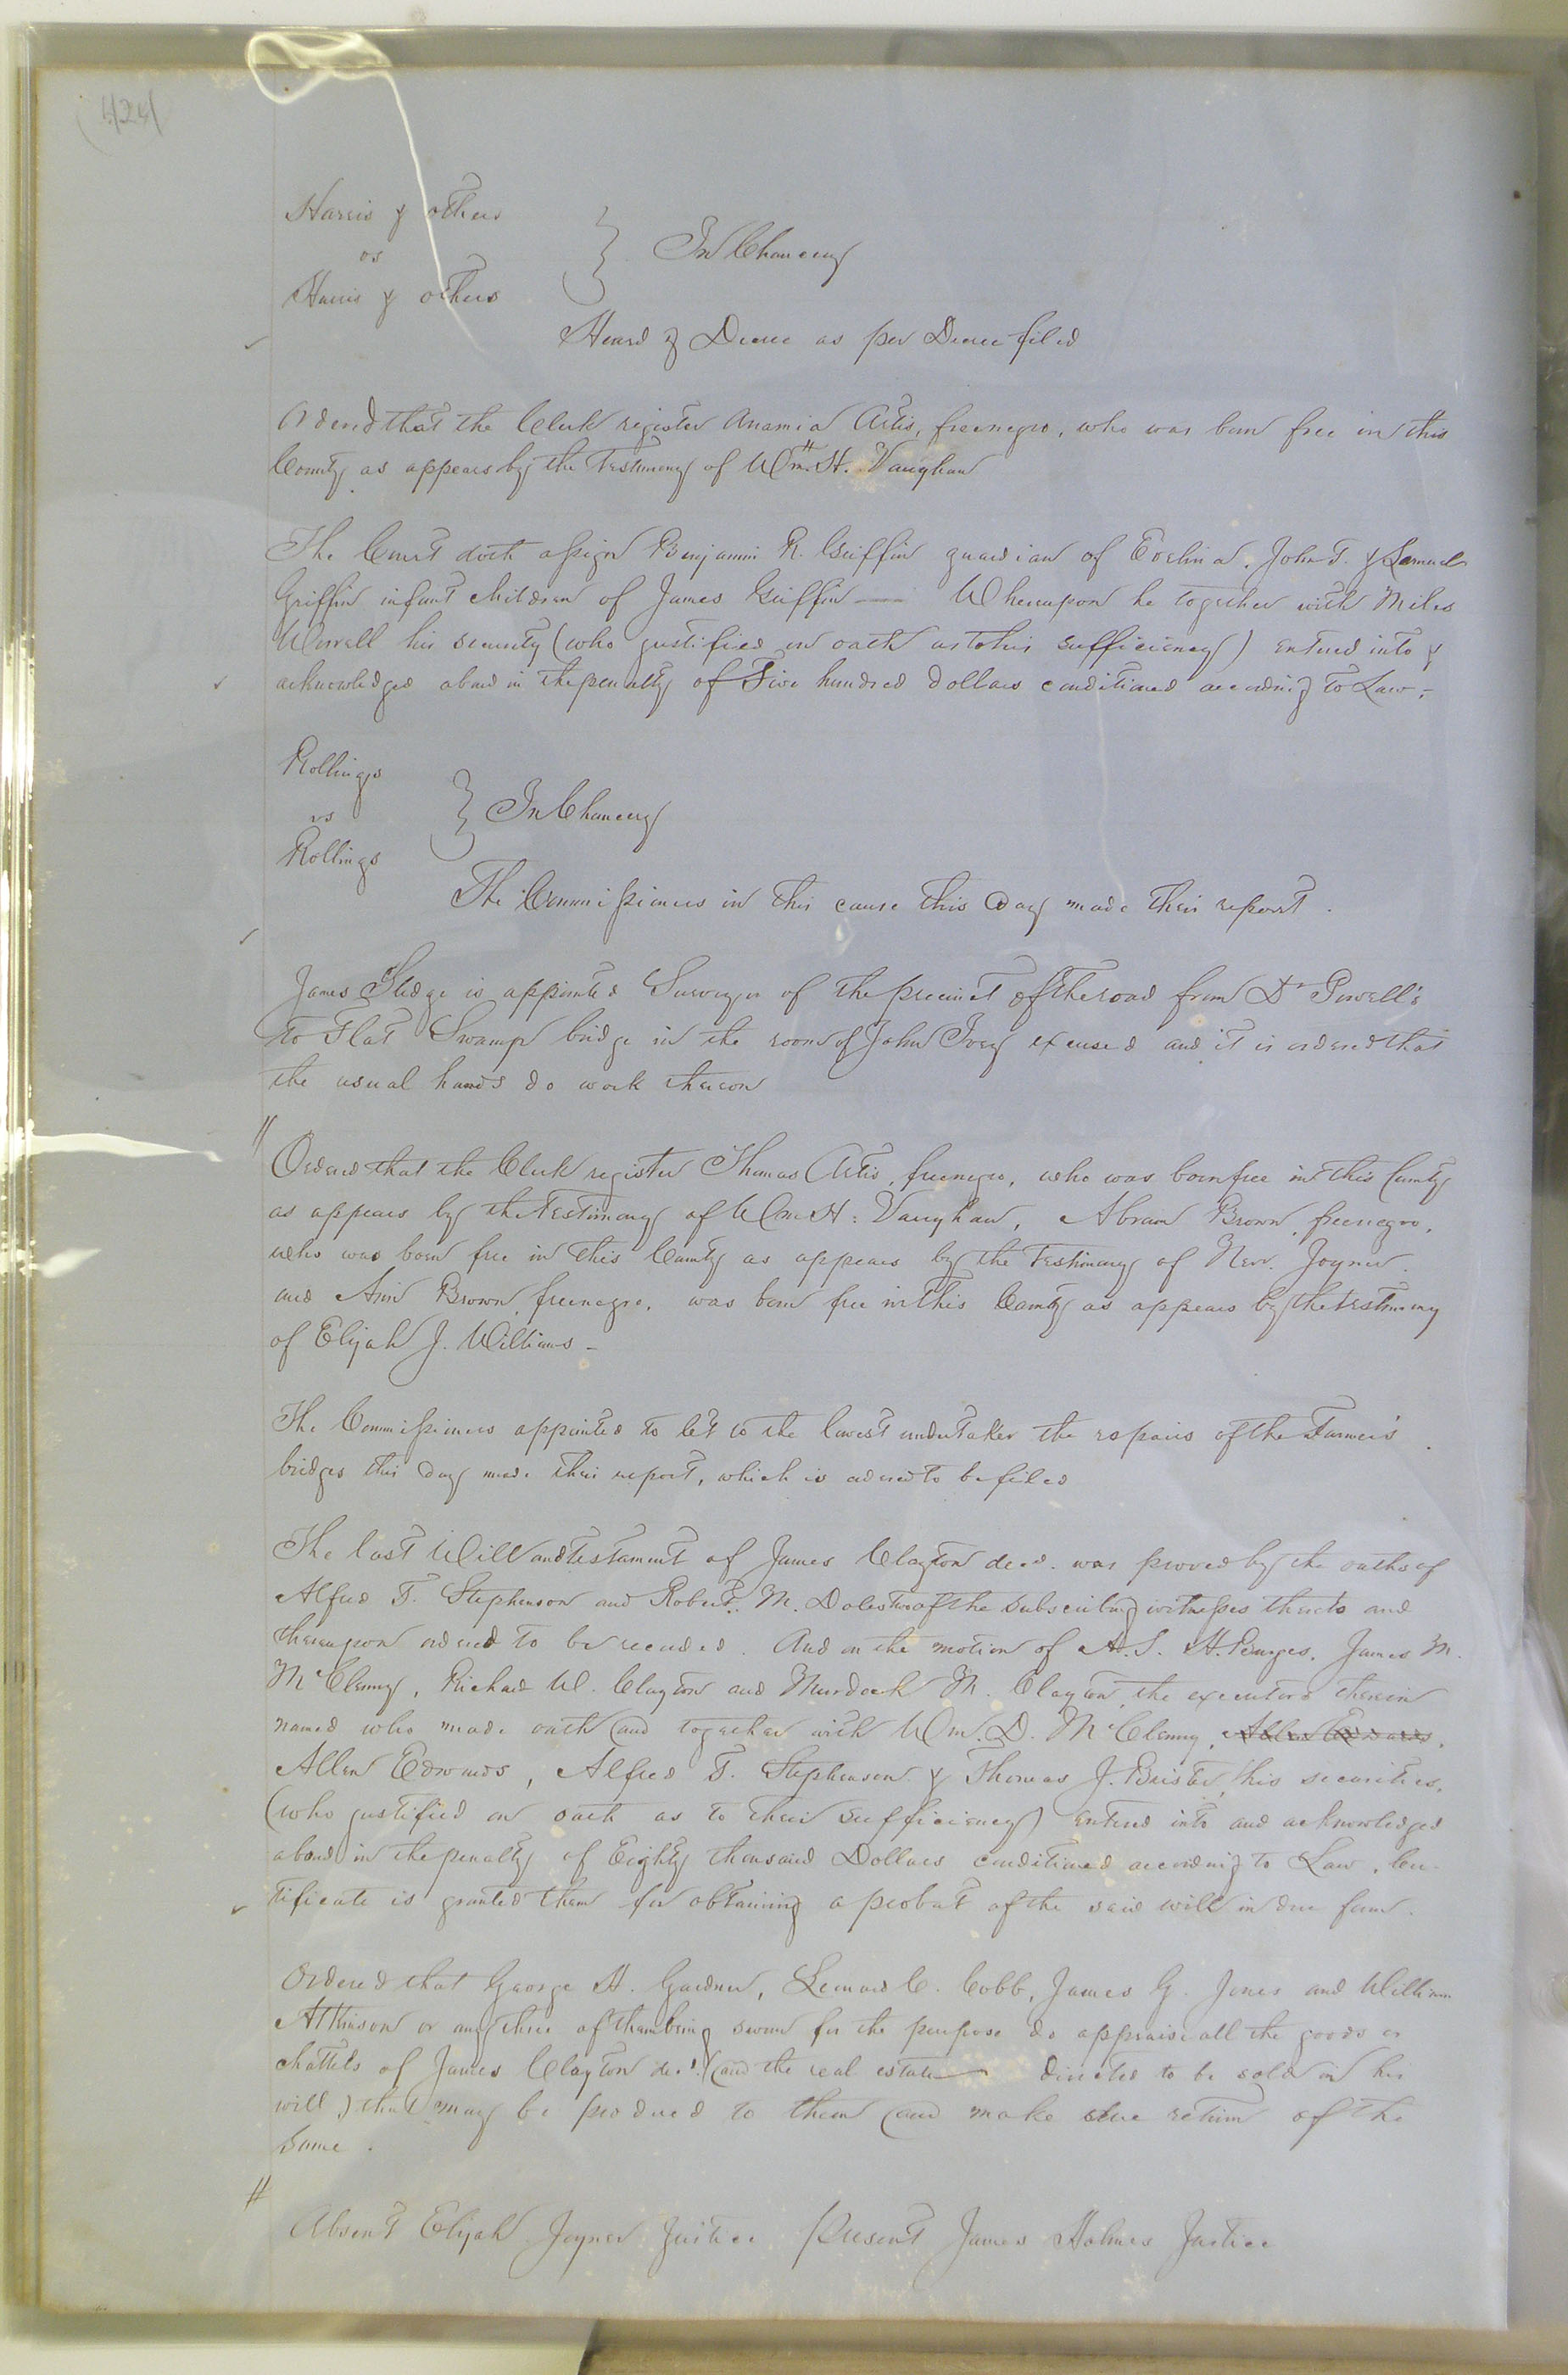 (424)
Harris & others
vs
Harris & others
In Chancery
Heard & Decree as per Decree filed
Ordered that the Clerk register Anamia Artis, freenegro, who was born free in this
County as appears by the Testimony of Wm. H. Vaughan
The Court doth assign Benjamin R. Griffin guardian of Evelina, John T. & Lemuel
Griffin infant children of James Griffin — Whereupon he together with Miles
Worrell his security (who justified on oath as to his sufficiency) entered into &
acknowledged a bond in the penalty of Five hundred dollars conditioned according to Law -
Rollings
vs
Rollings
In Chancery
The Commissioners in this cause this day made their report.
James Sledge is appointed Surveyor of the precinct of the road from Dr Powell's
to Flat Swamp bridge in the room of John Ivey excused and it is ordered that
the usual hands do work thereon
Ordered that the Clerk register Thomas Artis, freenegro, who was born free in this County
as appears by the Testimony of Wm H. Vaughan, Abram Brown, freenegro,
who was born free in this County as appears by the Testimony of Newt. Joyner.
and Ann Brown, freenegro, was born free in this County as appears by the testimony
of Elijah J. Williams -
The Commissioners appointed to let to the lowest undertaker the repairs of the Farmer's
bridges this day made their report, which is ordered to be filed
The last Will and testament of James Clayton decd. was proved by the oaths of
Alfred T. Stephenson and Robert M. Doles two of the subscribing witnesses thereto and
thereupon ordered to be recorded. And on the motion of A. S. H. Burges, James M.
McClenny, Richard W. Clayton and Murdock M. Clayton the executors therein
named who made oath and together with Wm. D. McClenny, Allen Edwards,
Allen Edwards, Alfred T. Stephenson & Thomas J. Brister, his securities,
(who justified on oath as to their sufficiency) entered into and acknowledged
a bond in the penalty of Eighty thousand Dollars conditioned according to Law, Cer-
tificate is granted them for obtaining a probat of the said will in due form.
Ordered that George H. Gardner, Leonard C. Cobb, James G. Jones and William
Atkinson or any three of them being sworn for the purpose do appraise all the goods or
chattels of James Clayton decd. (and the real estate directed to be sold in his
will) that may be produced to them and make due return of the
same.
Absent Elijah Joyner Justice Present James Holmes Justice